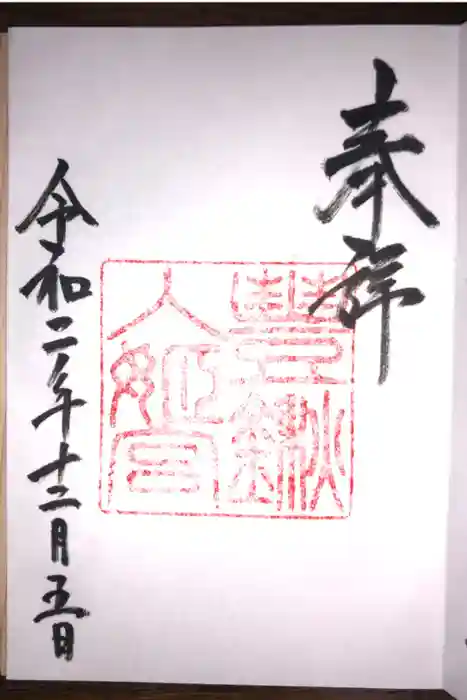 奉拝
豊鍬
入姫宮
令和二年十二月五日